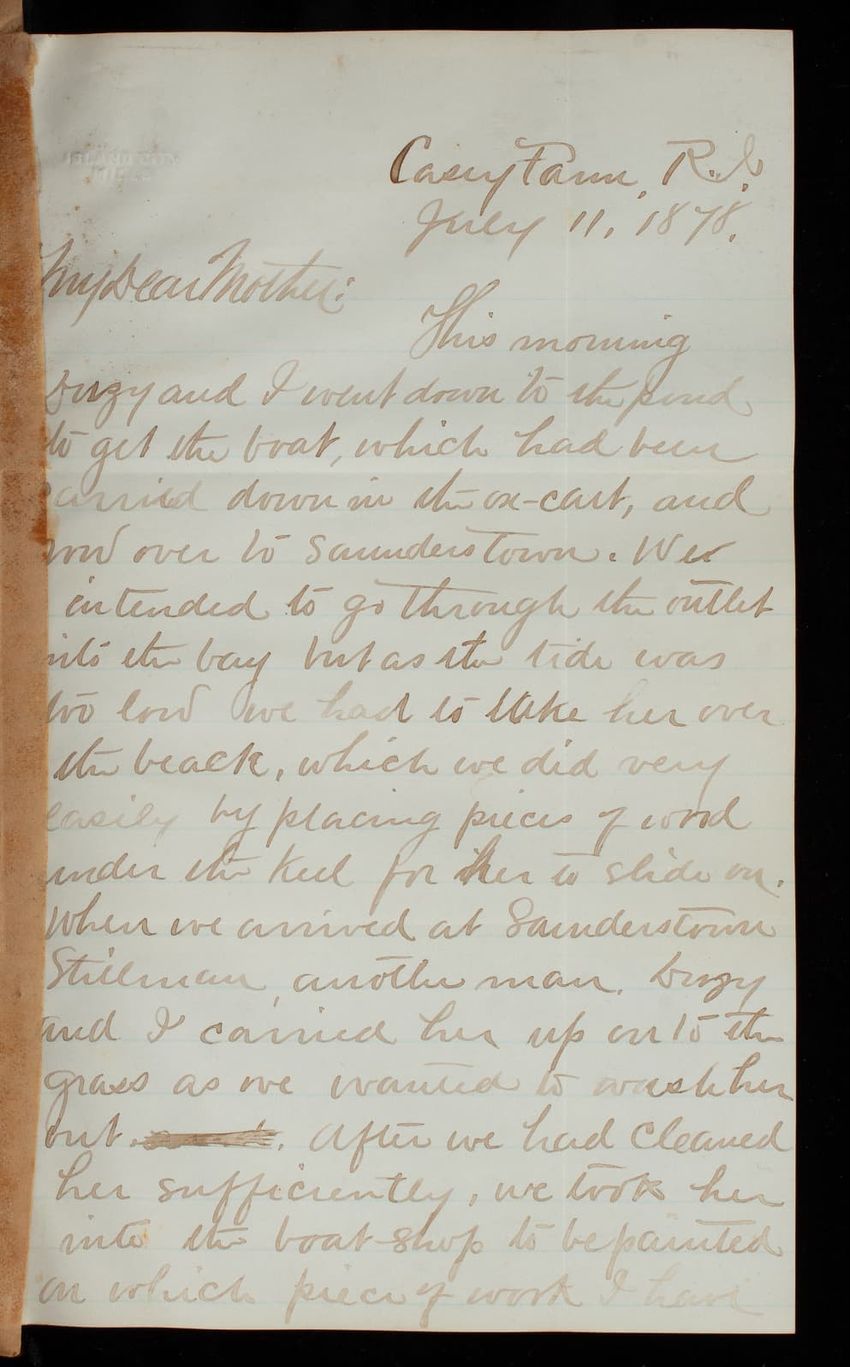 Casey Farm, R.I.
July 11, 1878.
My Dear Mother:
This morning
and I went down to the pond
to get the boat, which had been
carried down in the ox-cart, and
row over to Saunderstown. We
intended to go through the outlet
into the bay but as the tide was
too low we had to take her over
the beach, which we did very
easily by placing pieces of wood
under the keel for her to slide on.
When we arrived at Saunderstown
Stillman, another man,
and I carried her up on to the
grass as we wanted to wash her
out. After we had cleaned
her sufficiently, we took her
into the boat-shop to be painted
on which piece of work I have